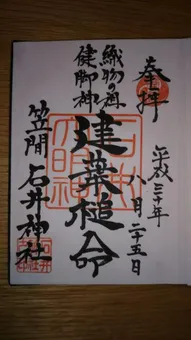 奉拝
平成三十年
八月二十五日
建葉槌命
織物の
健脚神
笠間 石井神社
石井
大明神